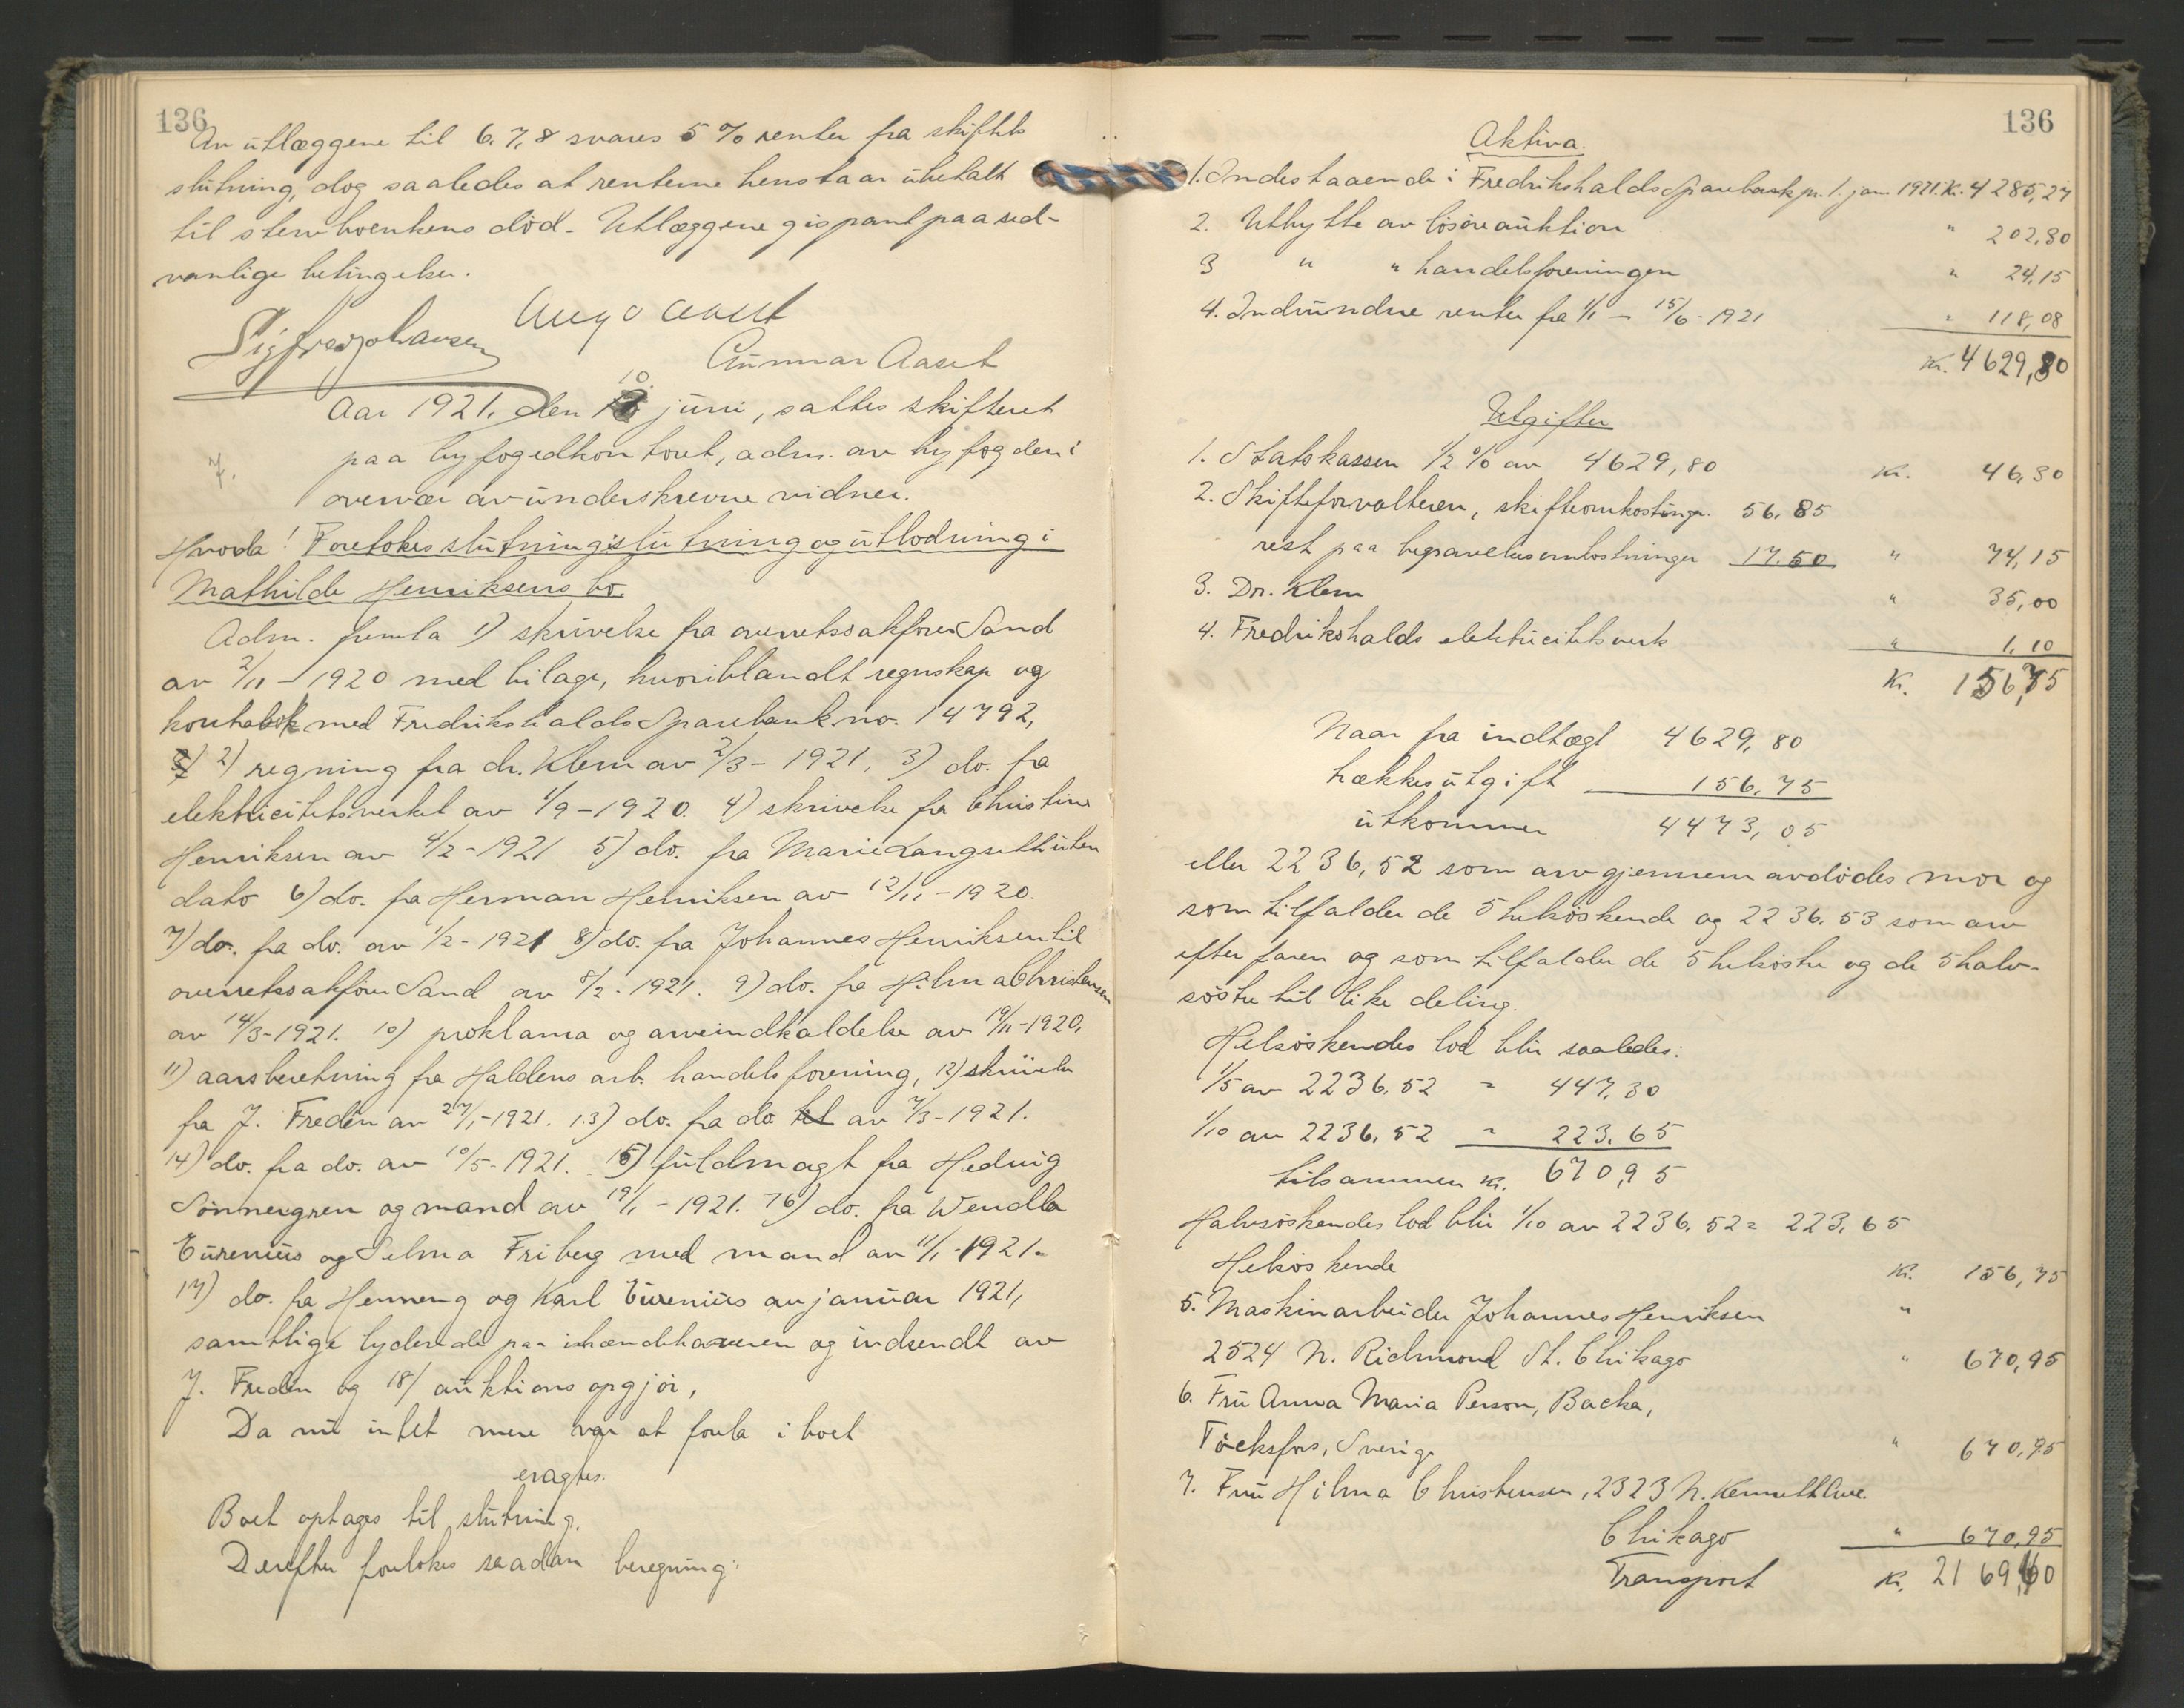 136
Av utlæggene til 6, 7, 8 svares 5 % renter fra skiftets
slutning, dog saaledes at renterne henstaar ubetalt
til stervboenkens død. Utlæggene gis pant paa sed-
vanlige betingelser.
Sigfred Johansen
Gunnar Aaset
Aar 1921, den 10. juni, sattes skifteret
7. paa byfogedkontoret, adm. av byfogden i
overvær av underskrevne vidner.
Hvorda! Foretokes slutningslutning og utlodning i
Mathilde Henriksens bo.
Adm. fremla 1) skrivelse fra overretssakfører Sand
av 2/11 - 1920 med bilage, hvoriblandt regnskap og
kontrabok med Fredrikshalds Sparebank no. 14792,
2) regning fra dr. Klem av 2/3 - 1921, 3) do. fra
elektricitetsverket av 1/9 - 1920. 4) skrivelse fra Christine
Henriksen av 4/2 - 1921 5) do. fra Marie Langseth uten
dato 6) do. fra Herman Henriksen av 12/11 - 1920.
7) do. fra do. av 1/2 - 1921 8) do. fra Johannes Henriksen til
overretssakfører Sand av 8/2 - 1921. 9) do. fra Hilma Christensen
av 14/3 - 1921. 10) proklama og arveindkaldelse av 19/11 - 1920,
11) aarsberetning fra Haldens arb. handelsforening, 12) skrivelse
fra J. Freden av 27/1 - 1921. 13) do. fra do. av 7/3 - 1921.
14) do. fra do. av 10/5 - 1921. 15) fuldmagt fra Hedvig
Sönnergren og mand av 19/1 - 1921. 16) do. fra Wendla
Eurenius og Selma Friberg med mand av 11/1 - 1921.
17) do. fra Henning og Karl Eurenius av januar 1921,
samtlige lydende paa ihændehaveren og indsendt av
J. Freden og 18/ auktionsopgjør,
Da nu intet mere var at forela i boet
eragtes.
Boet optages til slutning.
Derefter foretokes saadan beregning:
136
Aktiva.
1. Indestaaende i Fredrikshalds Sparebank pr. 1. jan 1921. Kr. 4285,27
2. Utbytte av løsøreauktion " 202,30
3 " " handelsforeningen " 24,15
4. Indvundne renter fra 1/1 - 15/6 - 1921 " 118,08
Kr. 4629,80
Utgifter
1. Statskassen 1/2 % av 4629,80 Kr. 46,30
2. Skifteforvalteren, skifteomkostninger. 56.85
rest paa begravelsesomkostninger 17.50 " 74,15
3. Dr. Klem " 35,00
4. Fredrikshalds elektricitetsverk " 1,10
Kr. 156,75
Naar fra indtægt 4629,80
trækkes utgift 156,75
utkommer 4473,05
eller 2236,52 som arv gjennem avdødes mor og
som tilfalder de 5 helsøskende og 2236.53 som arv
efter faren og som tilfalder de 5 helsøstre og de 5 halv-
søstre til like deling.
Helsøskendes lod blir saaledes:
1/5 av 2236,52 = 447,30
1/10 av 2236,52 = 223.65
tilsammen kr. 670,95
Halvsøskendes lod blir 1/10 av 2236,52 = 223,65
Helsøskende Kr. 156,75
5. Maskinarbeider Johannes Henriksen "
2524 N. Richmond St. Chikago " 670,95
6. Fru Anna Maria Person, Backa,
Töcksfors, Sverige " 670,95
7. Fru Hilma Christensen, 2323 N. Kenneth Ave.
Chikago " 670,95
Transport Kr. 2169,60